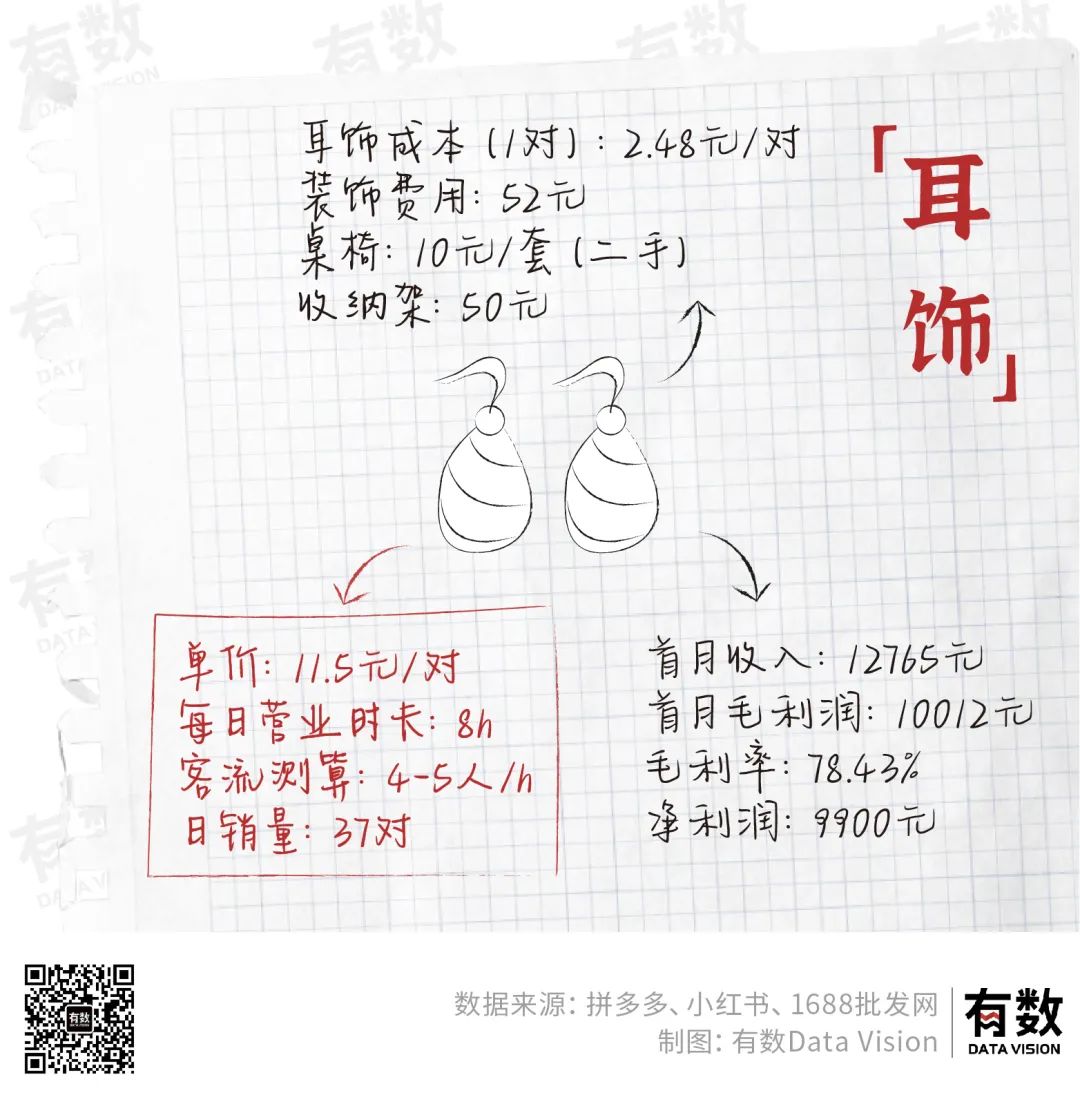 耳饰成本(1对):2.48元/对
装饰费用:52元
桌椅:10元/套(二手)
收纳架:50元
「耳饰」
单价:11.5元/对
每日营业时长:8h
客流测算:4-5人/h
日销量:37对
首月收入:12765元
首月毛利润:10012元
毛利率:78.43%
净利润:9900元
数据来源:拼多多、小红书、1688批发网
制图:有数Data Vision
有数
DATA VISION
有数